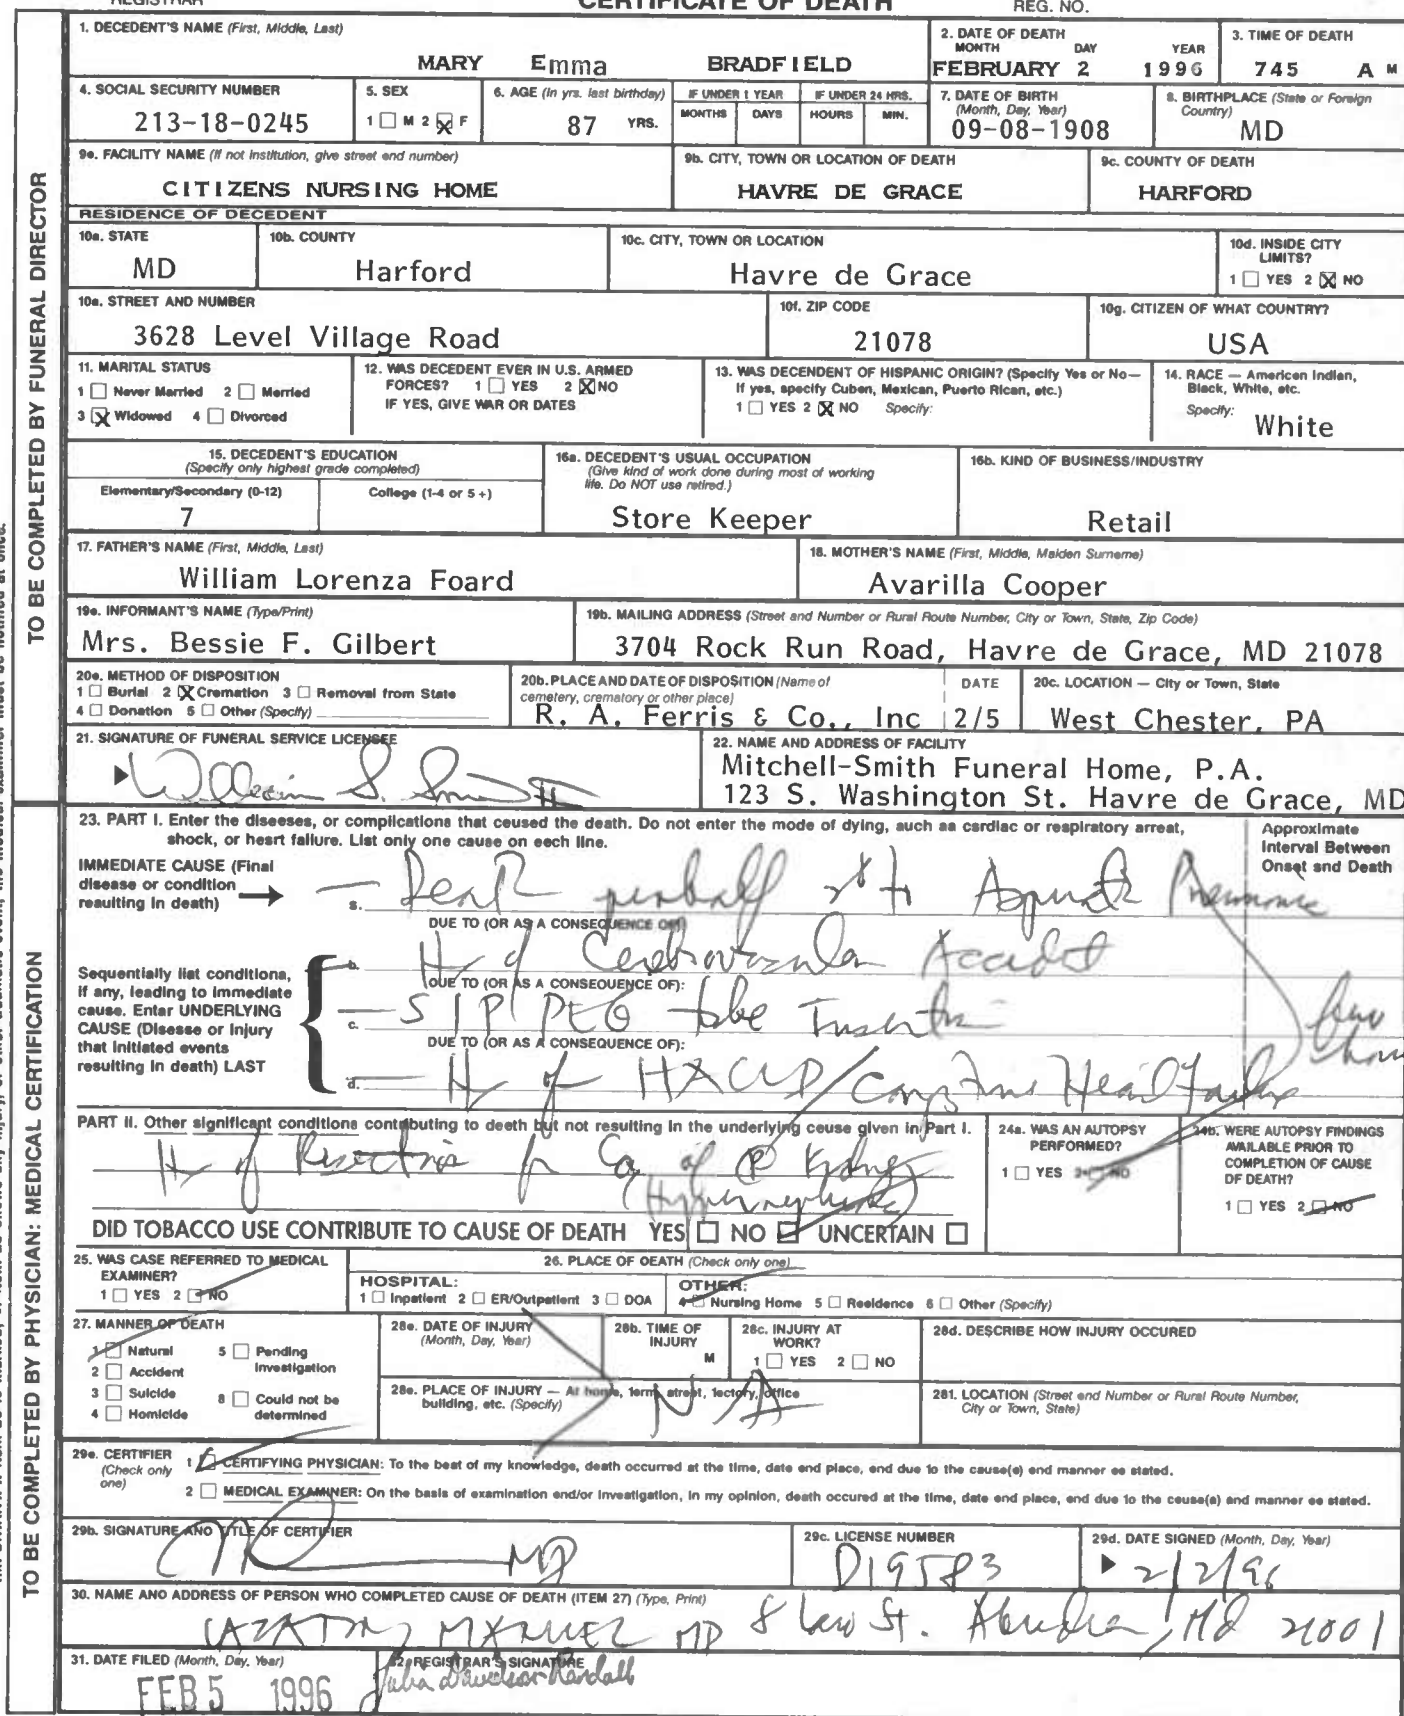 REGISTRAR CERTIFICATE OF DEATH REG. NO.
1. DECEDENT'S NAME (First, Middle, Last)
MARY Emma BRADFIELD
2. DATE OF DEATH
MONTH DAY YEAR
FEBRUARY 2 1996
3. TIME OF DEATH
745 A M
4. SOCIAL SECURITY NUMBER
213-18-0245
5. SEX
1 ☐ M 2 ☒ F
6. AGE (In yrs. last birthday)
87 YRS.
IF UNDER 1 YEAR
MONTHS DAYS
IF UNDER 24 HRS.
HOURS MIN.
7. DATE OF BIRTH
(Month, Day, Year)
09-08-1908
8. BIRTHPLACE (State or Foreign
Country)
MD
9a. FACILITY NAME (If not institution, give street and number)
CITIZENS NURSING HOME
9b. CITY, TOWN OR LOCATION OF DEATH
HAVRE DE GRACE
9c. COUNTY OF DEATH
HARFORD
RESIDENCE OF DECEDENT
10a. STATE
MD
10b. COUNTY
Harford
10c. CITY, TOWN OR LOCATION
Havre de Grace
10d. INSIDE CITY
LIMITS?
1 ☐ YES 2 ☒ NO
10e. STREET AND NUMBER
3628 Level Village Road
10f. ZIP CODE
21078
10g. CITIZEN OF WHAT COUNTRY?
USA
11. MARITAL STATUS
1 ☐ Never Married 2 ☐ Married
3 ☒ Widowed 4 ☐ Divorced
12. WAS DECEDENT EVER IN U.S. ARMED
FORCES? 1 ☐ YES 2 ☒ NO
IF YES, GIVE WAR OR DATES
13. WAS DECENDENT OF HISPANIC ORIGIN? (Specify Yes or No—
If yes, specify Cuban, Mexican, Puerto Rican, etc.)
1 ☐ YES 2 ☒ NO Specify:
14. RACE — American Indian,
Black, White, etc.
Specify:
White
15. DECEDENT'S EDUCATION
(Specify only highest grade completed)
Elementary/Secondary (0-12) College (1-4 or 5+)
7
16a. DECEDENT'S USUAL OCCUPATION
(Give kind of work done during most of working
life. Do NOT use retired.)
Store Keeper
16b. KIND OF BUSINESS/INDUSTRY
Retail
17. FATHER'S NAME (First, Middle, Last)
William Lorenza Foard
18. MOTHER'S NAME (First, Middle, Maiden Surname)
Avarilla Cooper
19a. INFORMANT'S NAME (Type/Print)
Mrs. Bessie F. Gilbert
19b. MAILING ADDRESS (Street and Number or Rural Route Number, City or Town, State, Zip Code)
3704 Rock Run Road, Havre de Grace, MD 21078
20a. METHOD OF DISPOSITION
1 ☐ Burial 2 ☒ Cremation 3 ☐ Removal from State
4 ☐ Donation 5 ☐ Other (Specify)
20b. PLACE AND DATE OF DISPOSITION (Name of
cemetery, crematory or other place)
R. A. Ferris & Co., Inc
DATE
2/5
20c. LOCATION — City or Town, State
West Chester, PA
21. SIGNATURE OF FUNERAL SERVICE LICENSEE
William S. Smith
22. NAME AND ADDRESS OF FACILITY
Mitchell-Smith Funeral Home, P.A.
123 S. Washington St. Havre de Grace, MD
TO BE COMPLETED BY FUNERAL DIRECTOR
23. PART I. Enter the diseases, or complications that caused the death. Do not enter the mode of dying, such as cardiac or respiratory arrest,
shock, or heart failure. List only one cause on each line.
Approximate
Interval Between
Onset and Death
IMMEDIATE CAUSE (Final
disease or condition
resulting in death)
a.
DUE TO (OR AS A CONSEQUENCE OF):
Sequentially list conditions,
if any, leading to immediate
cause. Enter UNDERLYING
CAUSE (Disease or injury
that initiated events
resulting in death) LAST
b. Hx of Cerebrovascular Accident
DUE TO (OR AS A CONSEQUENCE OF):
c. S/P PEG tube Insertion
DUE TO (OR AS A CONSEQUENCE OF):
d. Hx of Congestive Heart Failure
few
hours
PART II. Other significant conditions contributing to death but not resulting in the underlying cause given in Part I.
Hx of Ca of (R) Kidney
(Hypernephroma)
24a. WAS AN AUTOPSY
PERFORMED?
1 ☐ YES 2 ☐ NO
24b. WERE AUTOPSY FINDINGS
AVAILABLE PRIOR TO
COMPLETION OF CAUSE
OF DEATH?
1 ☐ YES 2 ☐ NO
DID TOBACCO USE CONTRIBUTE TO CAUSE OF DEATH YES ☐ NO ☑ UNCERTAIN ☐
25. WAS CASE REFERRED TO MEDICAL
EXAMINER?
1 ☐ YES 2 ☐ NO
26. PLACE OF DEATH (Check only one)
HOSPITAL:
1 ☐ Inpatient 2 ☐ ER/Outpatient 3 ☐ DOA
OTHER:
4 ☐ Nursing Home 5 ☐ Residence 6 ☐ Other (Specify)
27. MANNER OF DEATH
1 ☐ Natural 5 ☐ Pending
Investigation
2 ☐ Accident
3 ☐ Suicide 8 ☐ Could not be
determined
4 ☐ Homicide
28a. DATE OF INJURY
(Month, Day, Year)
28b. TIME OF
INJURY
M
28c. INJURY AT
WORK?
1 ☐ YES 2 ☐ NO
28d. DESCRIBE HOW INJURY OCCURED
28e. PLACE OF INJURY — At home, farm, street, factory, office
building, etc. (Specify)
N/A
28f. LOCATION (Street and Number or Rural Route Number,
City or Town, State)
29a. CERTIFIER
(Check only
one)
1 ☑ CERTIFYING PHYSICIAN: To the best of my knowledge, death occurred at the time, date and place, and due to the cause(s) and manner as stated.
2 ☐ MEDICAL EXAMINER: On the basis of examination and/or investigation, in my opinion, death occured at the time, date and place, and due to the cause(s) and manner as stated.
29b. SIGNATURE AND TITLE OF CERTIFIER
MD
29c. LICENSE NUMBER
D19583
29d. DATE SIGNED (Month, Day, Year)
2/2/96
30. NAME AND ADDRESS OF PERSON WHO COMPLETED CAUSE OF DEATH (ITEM 27) (Type, Print)
MD 8 Law St. Aberdeen, Md 21001
31. DATE FILED (Month, Day, Year)
FEB 5 1996
32. REGISTRAR'S SIGNATURE
Julia Davidson-Randall
TO BE COMPLETED BY PHYSICIAN: MEDICAL CERTIFICATION